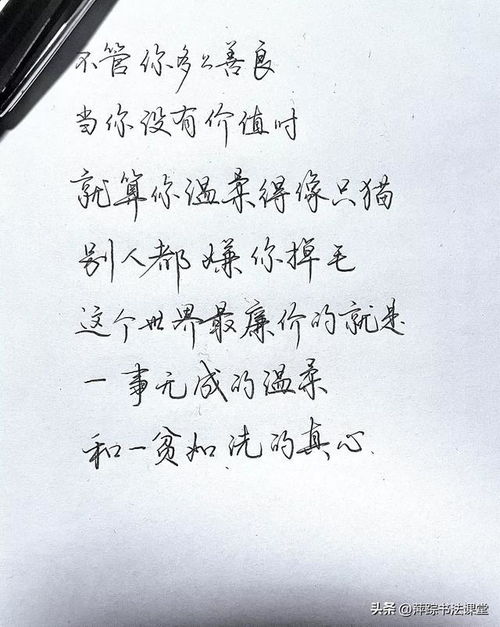 不管你多么善良
当你没有价值时
就算你温柔得像只猫
别人都嫌你掉毛
这个世界最廉价的就是
一事无成的温柔
和一贫如洗的真心
头条 @萍踪书法课堂